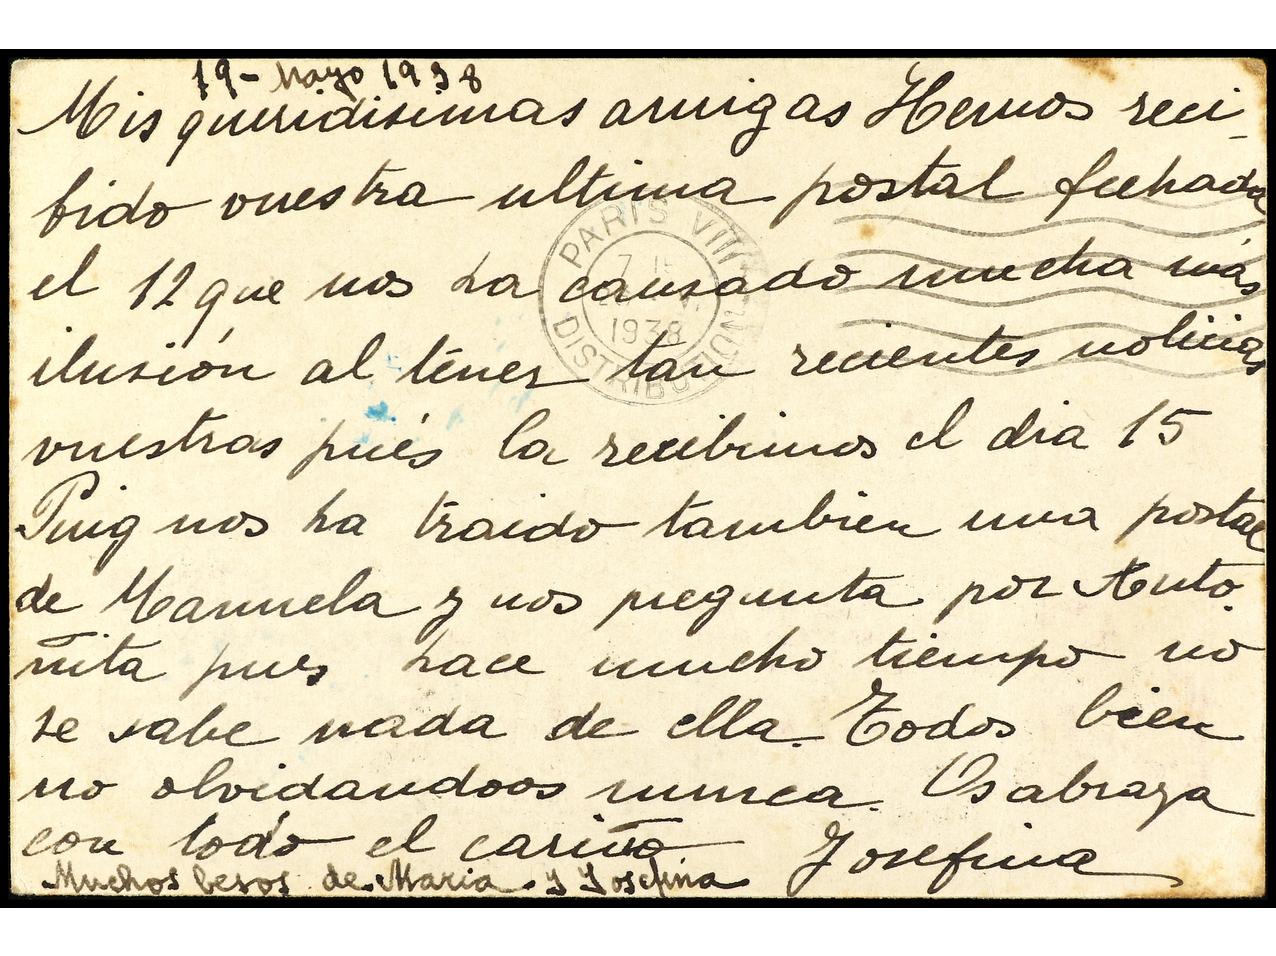 19- Mayo 1938
Mis queridisimas amigas Hemos reci-
bido vuestra ultima postal fechada
el 12 que nos ha causado mucha más
ilusión al téner tan recientes noticias
vuestras pués la recibimos el dia 15
Puig nos ha traido tambien una postal
de Manuela y nos pregunta por Anto-
ñita pues hace mucho tiempo no
se sabe nada de ella. Todos bien
no olvidandoos nunca. Os abraza
con todo el cariño Josefina
Muchos besos de Maria y Josefina
PARIS VIII
7 15
1938
DISTRIBUTION